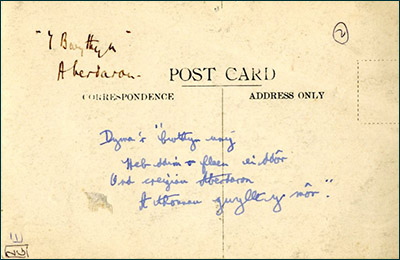 "Y Bwthyn"
Aberdaron.
2
POST CARD
CORRESPONDENCE
ADDRESS ONLY
Dyma'r "bwthyn unig
Heb ddim o flaen ei ddôr
Ond creigiau Aberdaron
A thonnau gwyllt y môr."